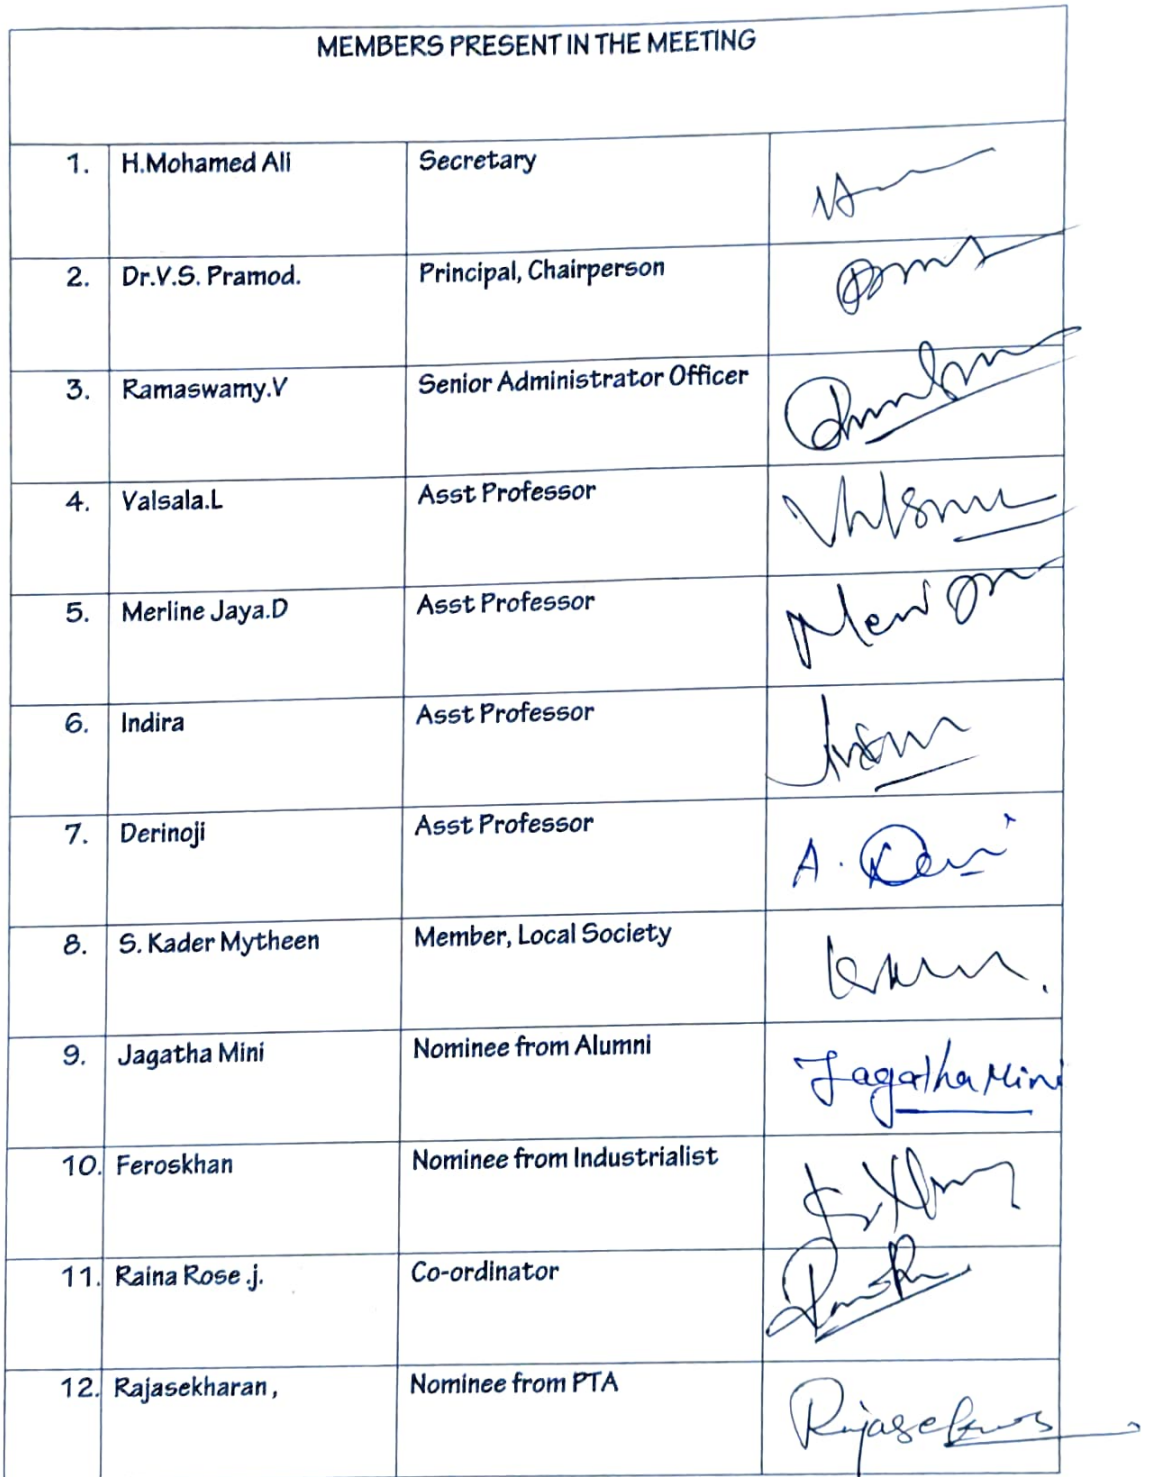 MEMBERS PRESENT IN THE MEETING
1. H.Mohamed Ali Secretary
2. Dr.V.S. Pramod. Principal, Chairperson
3. Ramaswamy.V Senior Administrator Officer
4. Valsala.L Asst Professor
5. Merline Jaya.D Asst Professor
6. Indira Asst Professor
7. Derinoji Asst Professor
8. S. Kader Mytheen Member, Local Society
9. Jagatha Mini Nominee from Alumni Jagatha Mini
10. Feroskhan Nominee from Industrialist
11. Raina Rose .j. Co-ordinator
12. Rajasekharan , Nominee from PTA